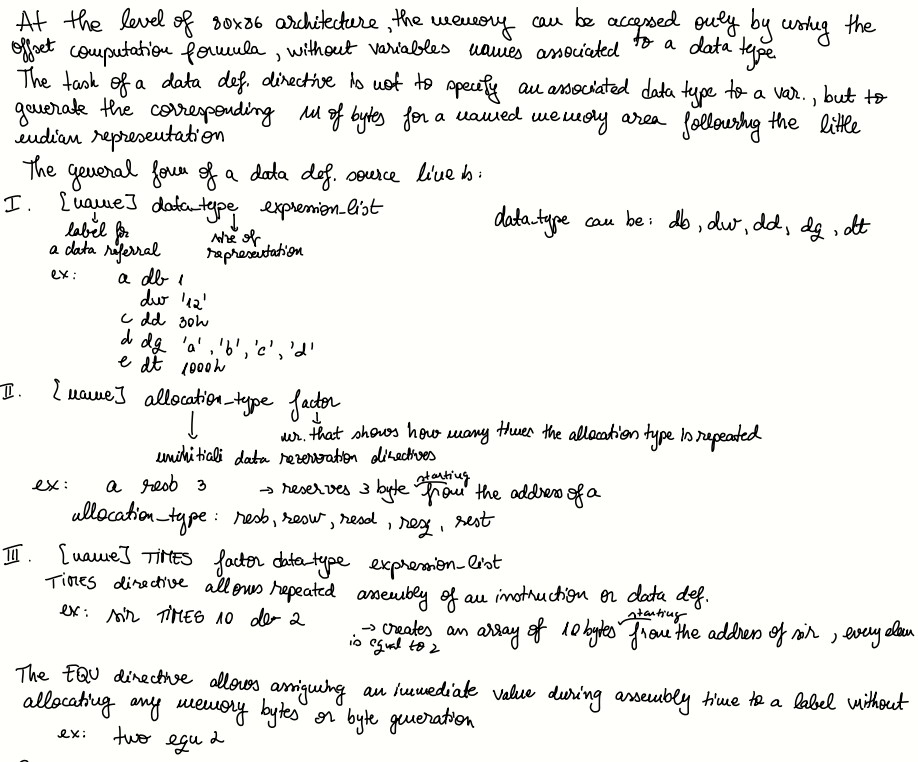 At the level of 80x86 architecture, the memory can be accessed only by using the
offset computation formula, without variables names associated to a data type
The task of a data def. directive is not to specify an associated data type to a var., but to
generate the corresponding nr of bytes for a named memory area following the little
endian representation
The general form of a data def. source line is:
I. [name] data_type expression_list
data_type can be: db, dw, dd, dq, dt
label for a data referral
size of representation
ex: a db 1
dw '12'
c dd 30h
d dq 'a', 'b', 'c', 'd'
e dt 1000h
II. [name] allocation_type factor
nr. that shows how many times the allocation type is repeated
uninitiali data reservation directives
ex: a resb 3 → reserves 3 byte starting from the address of a
allocation_type: resb, resw, resd, resq, rest
III. [name] TIMES factor data_type expression_list
TIMES directive allows repeated assembly of an instruction or data def.
ex: sir TIMES 10 db 2 → creates an array of 10 bytes starting from the address of sir, every elem
is equal to 2
The EQU directive allows assigning an immediate value during assembly time to a label without
allocating any memory bytes or byte generation
ex: two equ 2